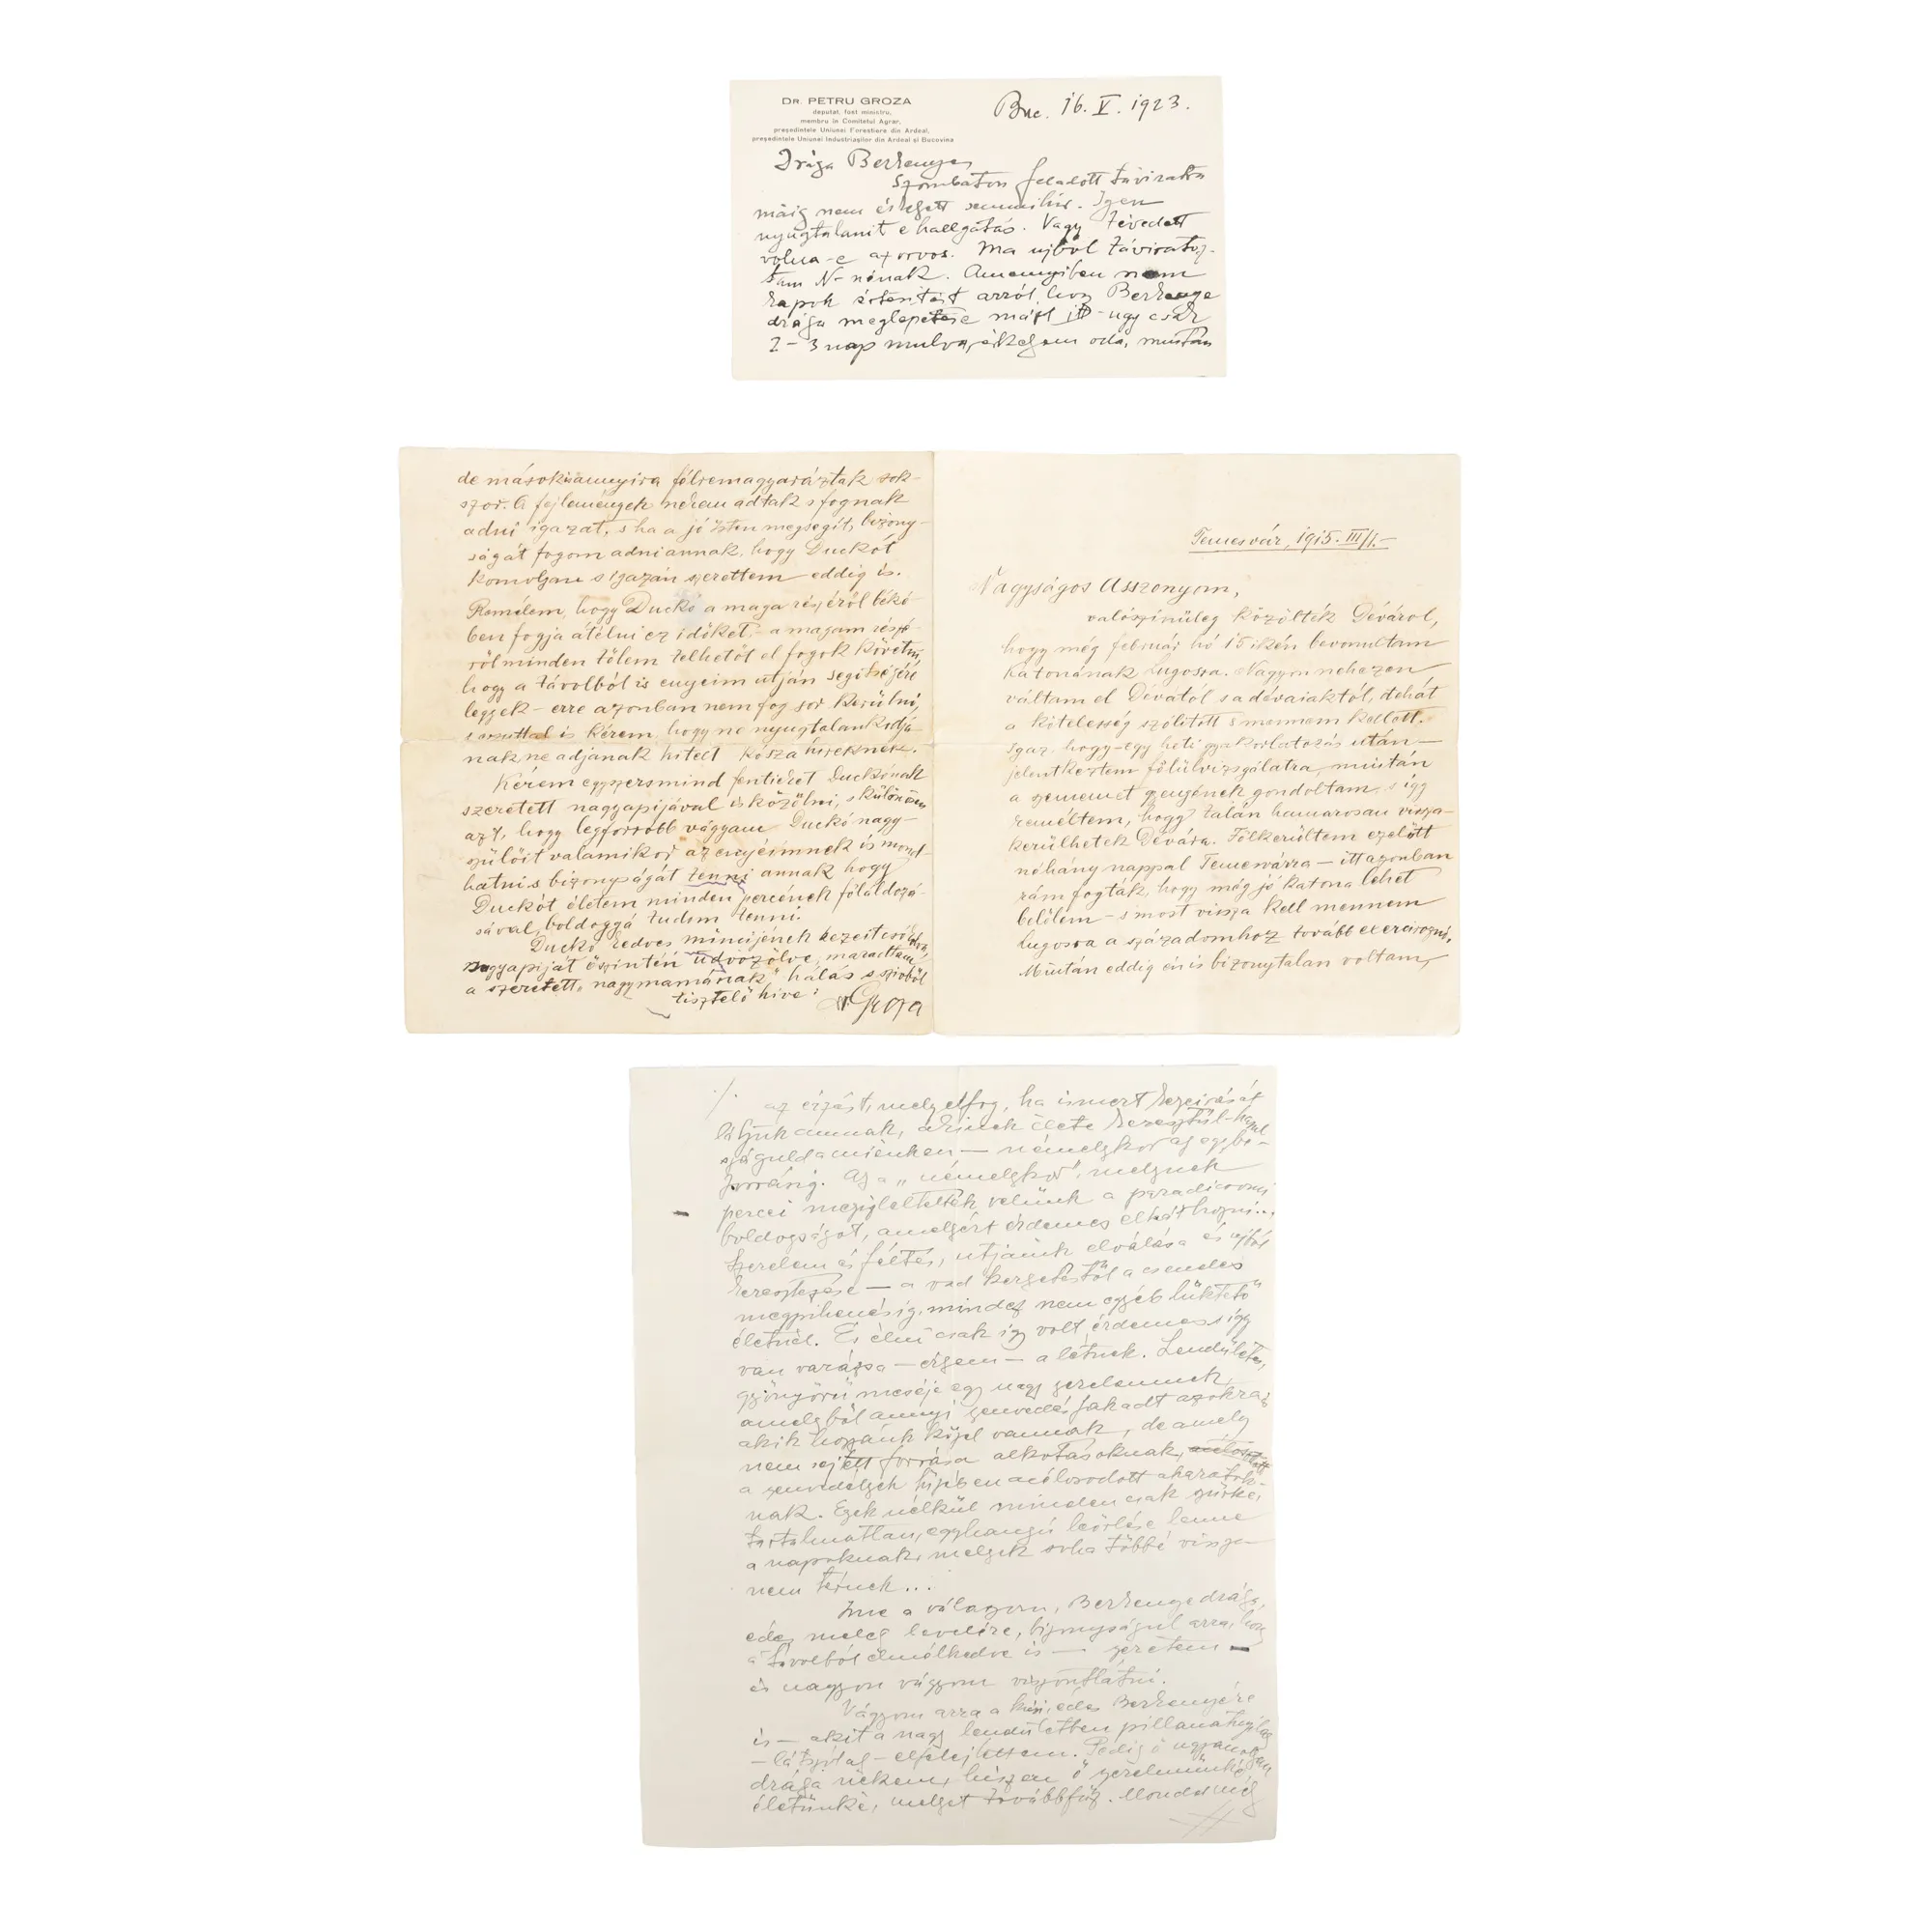 DR. PETRU GROZA
deputat, fost ministru,
membru în Comitetul Agrar,
președintele Uniunei Forestiere din Ardeal,
președintele Uniunei Industriașilor din Ardeal și Bucovina
Buc. 16. V. 1923.
Drága Berkenyém
Szombaton feladott táviratra
máig nem érkezett semmi hír. Igen
nyugtalanit e hallgatás. Vagy tévedett
volna-e az orvos. Ma ujból táviratoz-
tam N- nénak. Amennyiben nem
kapok értesitést arról, hogy Berkenye
drága meglepetése már itt - ugy csak
2-3 nap mulva érkezem oda, miután
de mások annyira félremagyarázták sok-
szor. A fejlemények nékem adtak s fognak
adni igazat, s ha a jó Isten megsegít, bizony-
ságát fogom adni annak, hogy Duckót
komolyan s igazán szerettem eddig is.
Remélem, hogy Duckó a maga részéről béké-
ben fogja átélni ez időket, - a magam részé-
ről minden tőlem telhetőt el fogok követni,
hogy a távolból is enyeim utján segítségére
legyek - erre azonban nem fog sor kerülni,
s ezuttal is kérem, hogy ne nyugtalankodja-
nak, ne adjanak hitelt kósza híreknek.
Kérem egyszersmind fentieket Duckónak
szeretett nagyapijával is közölni, s különösen
azt, hogy legforróbb vágyam Duckó nagy-
szülőit valamikor az enyéimnek is mond-
hatni s bizonyságát tenni annak hogy
Duckót életem minden percének föláldozá-
sával, boldoggá tudom tenni.
Duckó kedvesműncijének kezeit csókolva,
nagyapiját őszintén üdvözölve, maradtam
a szeretett „nagymamának" hálás s szívből
tisztelő hive:
Dr. Groza
Temesvár, 1915. III/1.-
Nagyságos Asszonyom,
valószinűleg közölték Déváról,
hogy még február hó 15ikén bevonultam
katonának Lugosra. Nagyon nehezen
váltam el Dévától s a dévaiaktól, dehát
a kötelesség szólitott s mennem kellett.
Igaz, hogy - egy heti gyakorlatozás után -
jelentkeztem fölülvizsgálatra, miután
a szememet gyengének gondoltam, s így
reméltem, hogy talán hamarosan vissza-
kerülhetek Dévára. Fölkerültem ezelőtt
néhány nappal Temesvárra - itt azonban
rám fogták, hogy még jó katona lehet
belőlem - s most vissza kell mennem
Lugosra a századomhoz tovább exercirozni.
Miután eddig én is bizonytalan voltam,
./.
az érzést, mely elfog, ha ismert kezeirását
látjuk annak, akinek élete keresztül-kasul
száguld a miénken - némelykor az egybe-
forrásig. Az a „némelykor", melynek
percei megízleltették velünk a paradicsomi
boldogságot, amelyért érdemes elkárhozni...
Szerelem és féltés, utjaink elválása és ujból
kereszteződése - a vad kergetéstől a csendes
megpihenésig, mindez nem egyéb lüktető
életnél. És élni csak így volt érdemes s így
van varázsa - érzem - a létnek. Lendületes,
gyönyörű meséje egy nagy szerelemnek,
amelyből annyi szenvedés fakadt azokra is
akik hozzánk közel vannak, de amely
nem sejtett forrása alkotásoknak,
a szenvedélyek tüzében acélosodott akaratok-
nak. Ezek nélkül minden csak szürke,
tartalmatlan, egyhangú leőrlése lenne
a napoknak, melyek soha többé vissza
nem térnek...
Ime a válaszom, Berkenye drága,
édes, meleg levelére, bizonyságul arra, hogy
a távolból elmélkedve is - szeretem -
és nagyon vágyom viszontlátni.
Vágyom arra a kicsi, édes Berkenyére
is - akit a nagy lendületben pillanatnyilag
- látszólag - elfelejtettem. Pedig ő ugyanolyan
drága nékem, hiszen ő szerelmünké,
életünké, melyet továbbfűz. Mondd meg